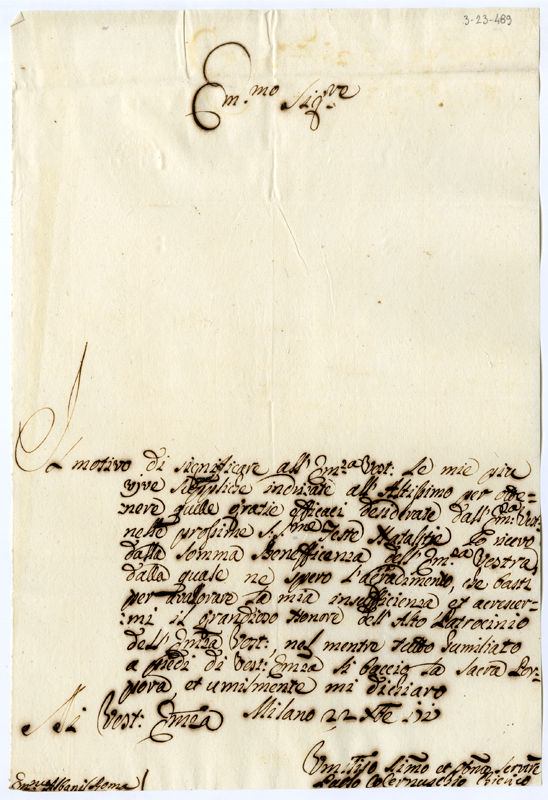 3-23-489
Em.mo Sig.re
Il motivo di significare all' Em.za Vost: le mie piu
vive suppliche indrizate all' Altissimo per otte-
nere quelle grazie efficaci desiderate dall' Em: Vost:
nelle prossime S.S.me Feste Natalitie lo ricevo
dalla somma Beneficienza dell' Em.za Vostra,
dalla quale ne spero l'agradimento, se basti
per avalorare la mia insufficienza et accresser-
mi il grandioso Honore dell' Alto Patrocinio
dell' Em.za Vost:, nel mentre tutto humiliato
a piedi di Vost: Em.za li baccio la Sacra Por-
pora, et umilmente mi dichiaro
Di Vost: Em.za Milano 22 Xbre
Umiliss.o et Servire
Paolo Cernuschio
Albani Roma